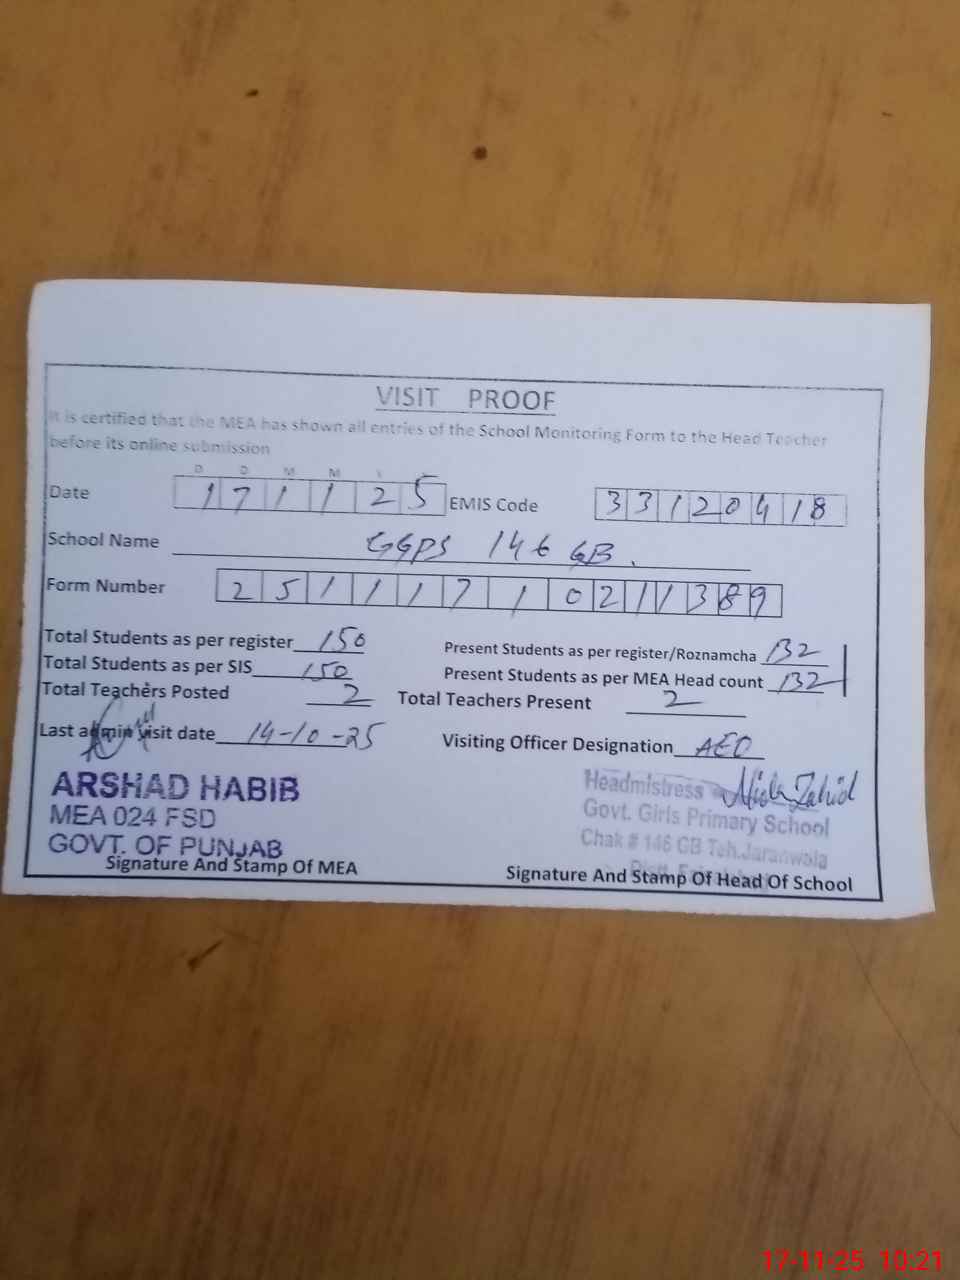 VISIT PROOF
It is certified that the MEA has shown all entries of the School Monitoring Form to the Head Teacher
before its online submission
D D M M Y Y
Date 1 7 1 1 2 5 EMIS Code 3 3 1 2 0 4 1 8
School Name GGPS 146 GB.
Form Number 2 5 1 1 1 7 1 0 2 1 1 3 8 9
Total Students as per register 150 Present Students as per register/Roznamcha 132
Total Students as per SIS 150 Present Students as per MEA Head count 132
Total Teachers Posted 2 Total Teachers Present 2
Last admin visit date 14-10-25 Visiting Officer Designation AEO
ARSHAD HABIB
MEA 024 FSD
GOVT. OF PUNJAB
Signature And Stamp Of MEA
Headmistress Zahid
Govt. Girls Primary School
Chak # 146 GB Teh. Jaranwala
Distt.
Signature And Stamp Of Head Of School
17-11-25 10:21